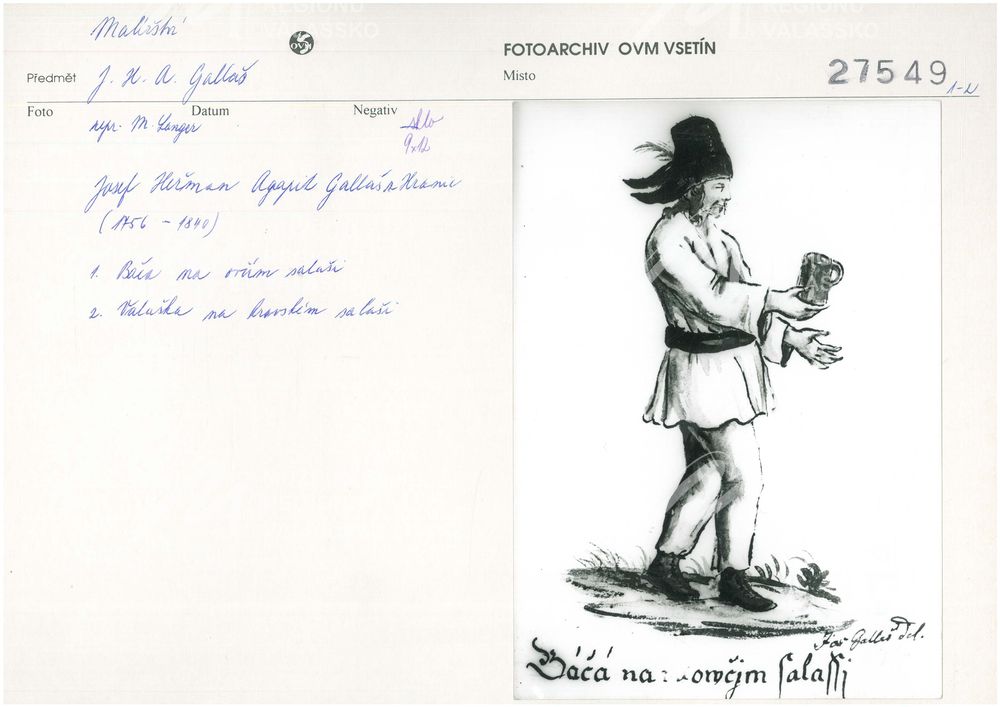 REGIONU
VALAŠSKO
Malířství
OVM
FOTOARCHIV OVM VSETÍN
Předmět J. H. A. Gallaš
Misto
27549 1-2
Foto
Datum
Negativ
repr. M. Langer
sklo
9x12
Josef Heřman Agapit Gallaš z Hranic
(1756 - 1840)
1. Bača na ovčím salaši
2. Valaška na kravském salaši
Jos Gallaš Del.
Báčá na owčjm salassi